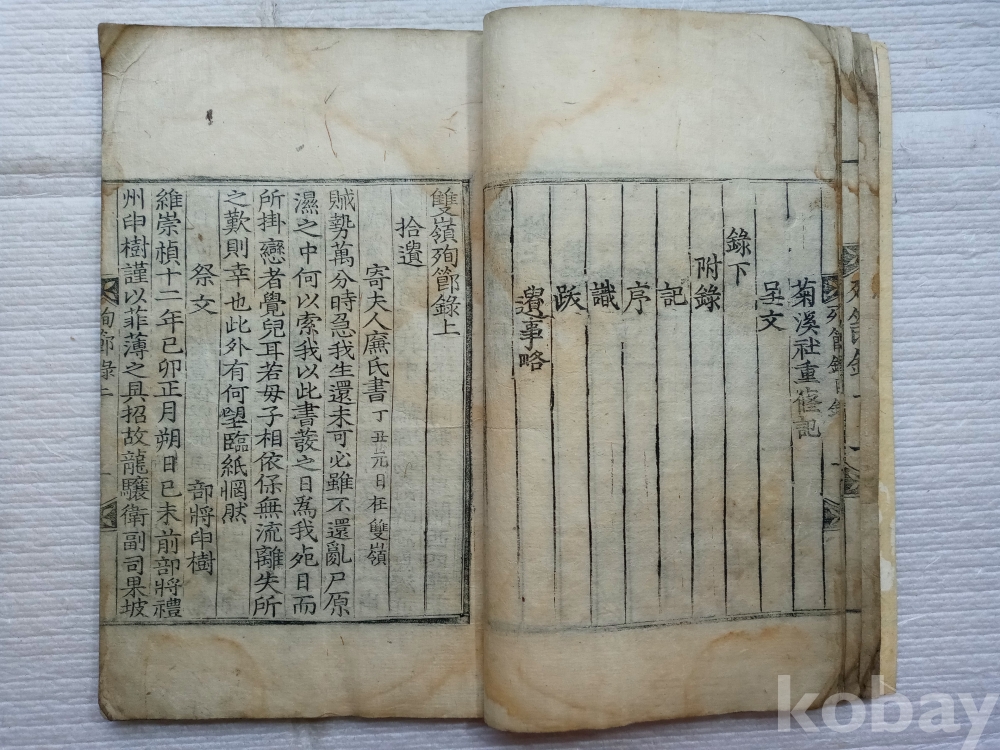 菊溪社重修記
呈文
錄下
附錄
記
序
識
跋
遺事略
雙嶺殉節錄上
拾遺
寄夫人廉氏書 丁丑元日在雙嶺
賊勢萬分時急我生還未可必雖不還亂尸原
濕之中何以索我以此書發之日爲我死日而
所掛戀者覺兒耳若母子相依保無流離失所
之歎則幸也此外有何望臨紙惘然
祭文 部將申樹
維崇禎十二年己卯正月朔日己未前部將禮
州申樹謹以菲薄之具招故龍驤衛副司果坡
殉節錄上
kobay